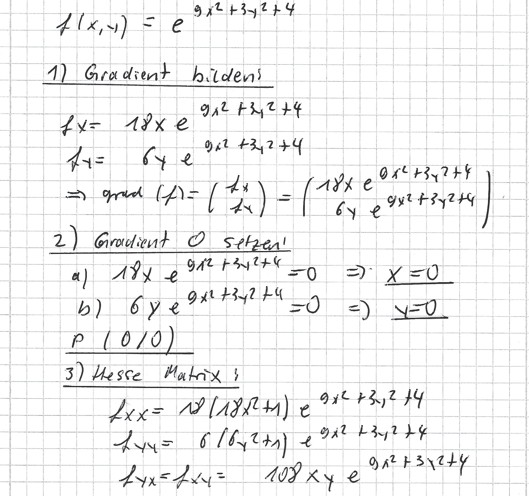 f(x,y) = e^{9x²+3y²+4}
1) Gradient bilden:
fx = 18x e^{9x²+3y²+4}
fy = 6y e^{9x²+3y²+4}
⇒ grad (f) = (fx fy) = (18x e^{9x²+3y²+4} 6y e^{9x²+3y²+4})
2) Gradient 0 setzen:
a) 18x e^{9x²+3y²+4} = 0 ⇒ x = 0
b) 6y e^{9x²+3y²+4} = 0 ⇒ y = 0
P (0/0)
3) Hesse Matrix:
fxx = 18(18x²+1) e^{9x²+3y²+4}
fyy = 6(6y²+1) e^{9x²+3y²+4}
fyx = fxy = 108xy e^{9x²+3y²+4}